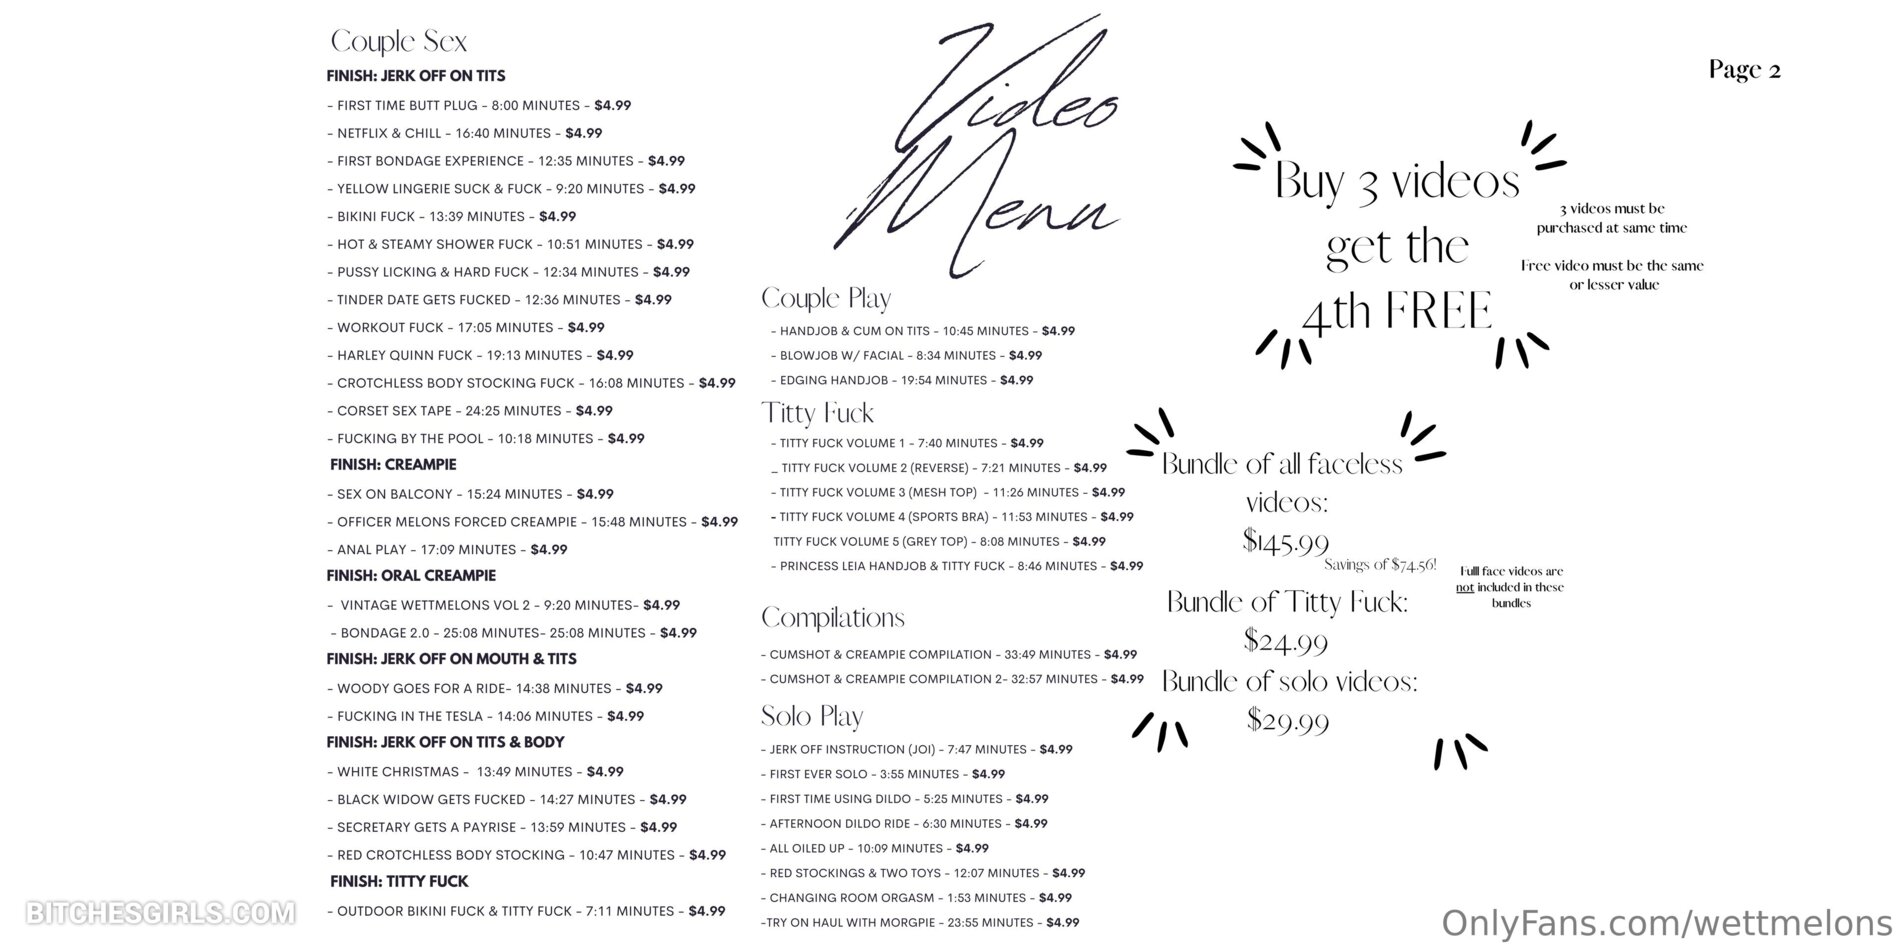 Couple Sex
FINISH: JERK OFF ON TITS
- FIRST TIME BUTT PLUG - 8:00 MINUTES - $4.99
- NETFLIX & CHILL - 16:40 MINUTES - $4.99
- FIRST BONDAGE EXPERIENCE - 12:35 MINUTES - $4.99
- YELLOW LINGERIE SUCK & FUCK - 9:20 MINUTES - $4.99
- BIKINI FUCK - 13:39 MINUTES - $4.99
- HOT & STEAMY SHOWER FUCK - 10:51 MINUTES - $4.99
- PUSSY LICKING & HARD FUCK - 12:34 MINUTES - $4.99
- TINDER DATE GETS FUCKED - 12:36 MINUTES - $4.99
- WORKOUT FUCK - 17:05 MINUTES - $4.99
- HARLEY QUINN FUCK - 19:13 MINUTES - $4.99
- CROTCHLESS BODY STOCKING FUCK - 16:08 MINUTES - $4.99
- CORSET SEX TAPE - 24:25 MINUTES - $4.99
- FUCKING BY THE POOL - 10:18 MINUTES - $4.99
FINISH: CREAMPIE
- SEX ON BALCONY - 15:24 MINUTES - $4.99
- OFFICER MELONS FORCED CREAMPIE - 15:48 MINUTES - $4.99
- ANAL PLAY - 17:09 MINUTES - $4.99
FINISH: ORAL CREAMPIE
- VINTAGE WETTMELONS VOL 2 - 9:20 MINUTES- $4.99
- BONDAGE 2.0 - 25:08 MINUTES- 25:08 MINUTES - $4.99
FINISH: JERK OFF ON MOUTH & TITS
- WOODY GOES FOR A RIDE- 14:38 MINUTES - $4.99
- FUCKING IN THE TESLA - 14:06 MINUTES - $4.99
FINISH: JERK OFF ON TITS & BODY
- WHITE CHRISTMAS - 13:49 MINUTES - $4.99
- BLACK WIDOW GETS FUCKED - 14:27 MINUTES - $4.99
- SECRETARY GETS A PAYRISE - 13:59 MINUTES - $4.99
- RED CROTCHLESS BODY STOCKING - 10:47 MINUTES - $4.99
FINISH: TITTY FUCK
- OUTDOOR BIKINI FUCK & TITTY FUCK - 7:11 MINUTES - $4.99
Video
Menu
Couple Play
- HANDJOB & CUM ON TITS - 10:45 MINUTES - $4.99
- BLOWJOB W/ FACIAL - 8:34 MINUTES - $4.99
- EDGING HANDJOB - 19:54 MINUTES - $4.99
Titty Fuck
- TITTY FUCK VOLUME 1 - 7:40 MINUTES - $4.99
_ TITTY FUCK VOLUME 2 (REVERSE) - 7:21 MINUTES - $4.99
- TITTY FUCK VOLUME 3 (MESH TOP) - 11:26 MINUTES - $4.99
- TITTY FUCK VOLUME 4 (SPORTS BRA) - 11:53 MINUTES - $4.99
TITTY FUCK VOLUME 5 (GREY TOP) - 8:08 MINUTES - $4.99
- PRINCESS LEIA HANDJOB & TITTY FUCK - 8:46 MINUTES - $4.99
Compilations
- CUMSHOT & CREAMPIE COMPILATION - 33:49 MINUTES - $4.99
- CUMSHOT & CREAMPIE COMPILATION 2- 32:57 MINUTES - $4.99
Solo Play
- JERK OFF INSTRUCTION (JOI) - 7:47 MINUTES - $4.99
- FIRST EVER SOLO - 3:55 MINUTES - $4.99
- FIRST TIME USING DILDO - 5:25 MINUTES - $4.99
- AFTERNOON DILDO RIDE - 6:30 MINUTES - $4.99
- ALL OILED UP - 10:09 MINUTES - $4.99
- RED STOCKINGS & TWO TOYS - 12:07 MINUTES - $4.99
- CHANGING ROOM ORGASM - 1:53 MINUTES - $4.99
-TRY ON HAUL WITH MORGPIE - 23:55 MINUTES - $4.99
Page 2
Buy 3 videos
get the
4th FREE
3 videos must be
purchased at same time
Free video must be the same
or lesser value
Bundle of all faceless
videos:
$145.99
Savings of $74.56!
Fulll face videos are
not included in these
bundles
Bundle of Titty Fuck:
$24.99
Bundle of solo videos:
$29.99
BITCHESGIRLS.COM
OnlyFans.com/wettmelons